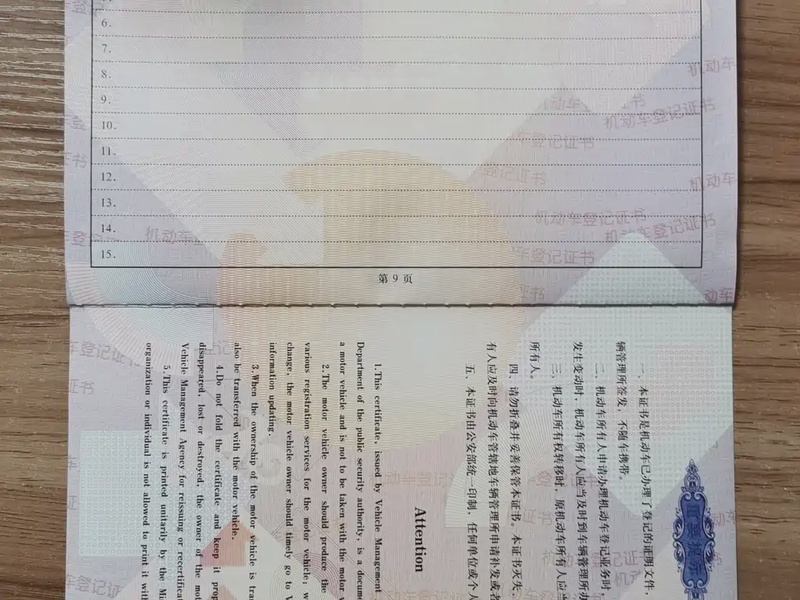 6.
7.
8.
9.
10.
11.
12.
13.
14.
15.
第 9 页
一、本证书是机动车已办理了登记的证明文件,
辆管理所签发,不随车携带。
二、机动车所有人申请办理机动车登记业务时,
发生变动时,机动车所有人应当及时到车辆管理所办
三、机动车所有权转移时,原机动车所有人应当
所有人。
四、请勿折叠并妥善保管本证书,本证书灭失、
有人应及时向机动车管辖地车辆管理所申请补发或
五、本证书由公安部统一印制,任何单位或个人
Attention
1.This certificate, issued by Vehicle Management
Department of the public security authority, is a docume
a motor vehicle and is not to be taken with the motor v
2.The motor vehicle owner should produce the
various registration services for the motor vehicle; w
change, the motor vehicle owner should timely go to V
information updating.
3.When the ownership of the motor vehicle is tran
also be transferred with the motor vehicle.
4.Do not fold the certificate and keep it prop
disappeared, lost or destroyed, the owner of the mot
Vehicle Management Agency for reissuing or recertificat
5.This certificate is printed unitarily by the Mi
organization or individual is not allowed to print it with
机动车登记证书
机动车登记证书
机动车登记证书
机动车登记证书